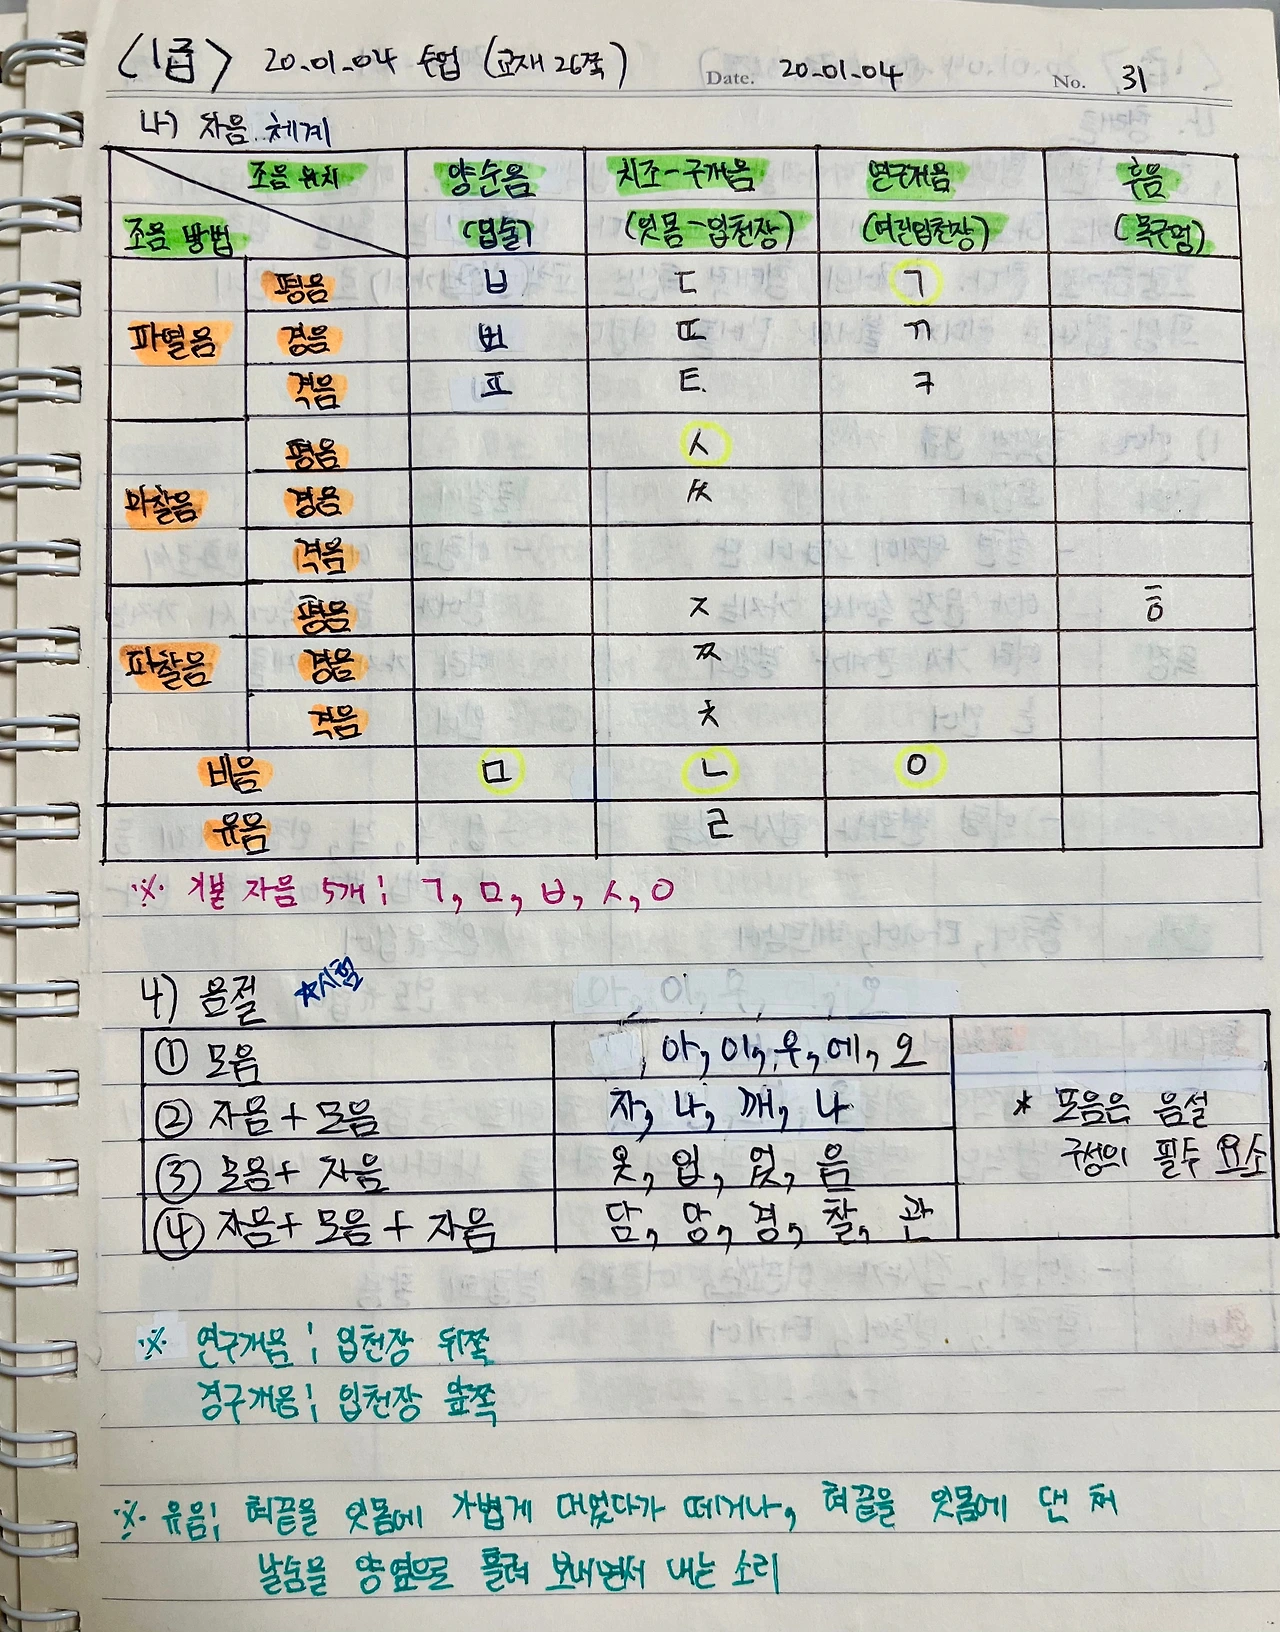 <1급> 20.01.04 수업 (교재 26쪽) Date. 20.01.04 No. 31
나) 자음 체계
조음 위치 양순음 치조-구개음 연구개음 후음
조음 방법 (입술) (잇몸-입천장) (여린입천장) (목구멍)
평음 ㅂ ㄷ ㄱ
파열음 경음 ㅃ ㄸ ㄲ
격음 ㅍ ㅌ ㅋ
평음 ㅅ
마찰음 경음 ㅆ
격음
평음 ㅈ ㅎ
파찰음 경음 ㅉ
격음 ㅊ
비음 ㅁ ㄴ ㅇ
유음 ㄹ
※ 기본 자음 5개; ㄱ, ㅁ, ㅂ, ㅅ, ㅇ
4) 음절 ☆시험
① 모음 , 아, 이, 우, 에, 오
② 자음 + 모음 자, 나, 깨, 나 * 모음은 음절
③ 모음 + 자음 옷, 업, 없, 음 구성의 필수 요소
④ 자음 + 모음 + 자음 담, 망, 경, 찰, 관
※ 연구개음; 입천장 뒤쪽
경구개음; 입천장 앞쪽
※ 유음; 혀끝을 잇몸에 가볍게 대었다가 떼거나, 혀끝을 잇몸에 댄 채
날숨을 양옆으로 흘려 보내면서 내는 소리